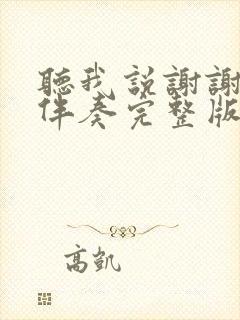 聽我説謝謝
伴奏完整版
高凱